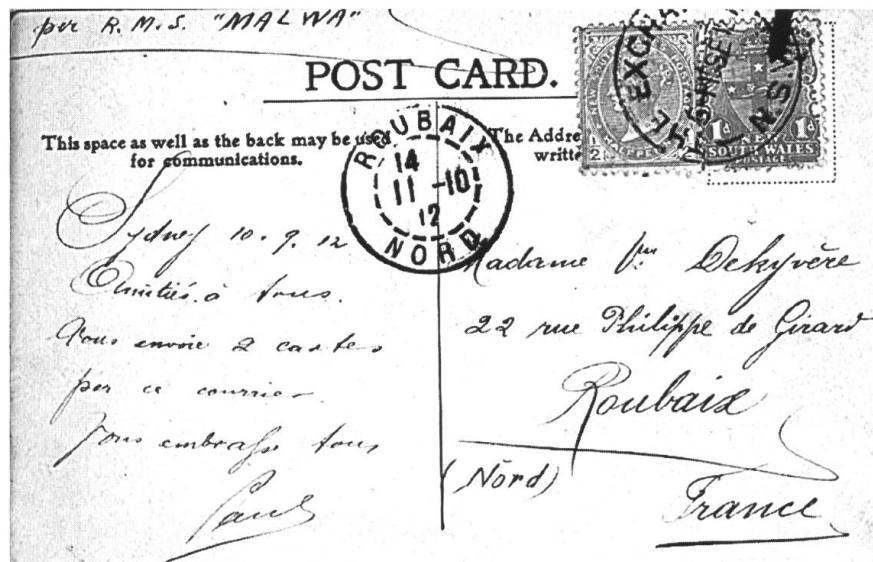 per R.M.S. "MALWA"
POST CARD.
This space as well as the back may be used
for communications.
The Addre
writte
ROUBAIX
14
11 -10
12
NORD
EXCHA
N.S.W.
HALF PEN
1d 1d
SOUTH WALES
POSTAGE
Sydney 10.9.12
Amitiés à tous.
Vous envoie 2 cartes
par ce courrier
Vous embrasse tous
Paul
Madame Vve Dekyvère
22 rue Philippe de Girard
Roubaix
(Nord)
France